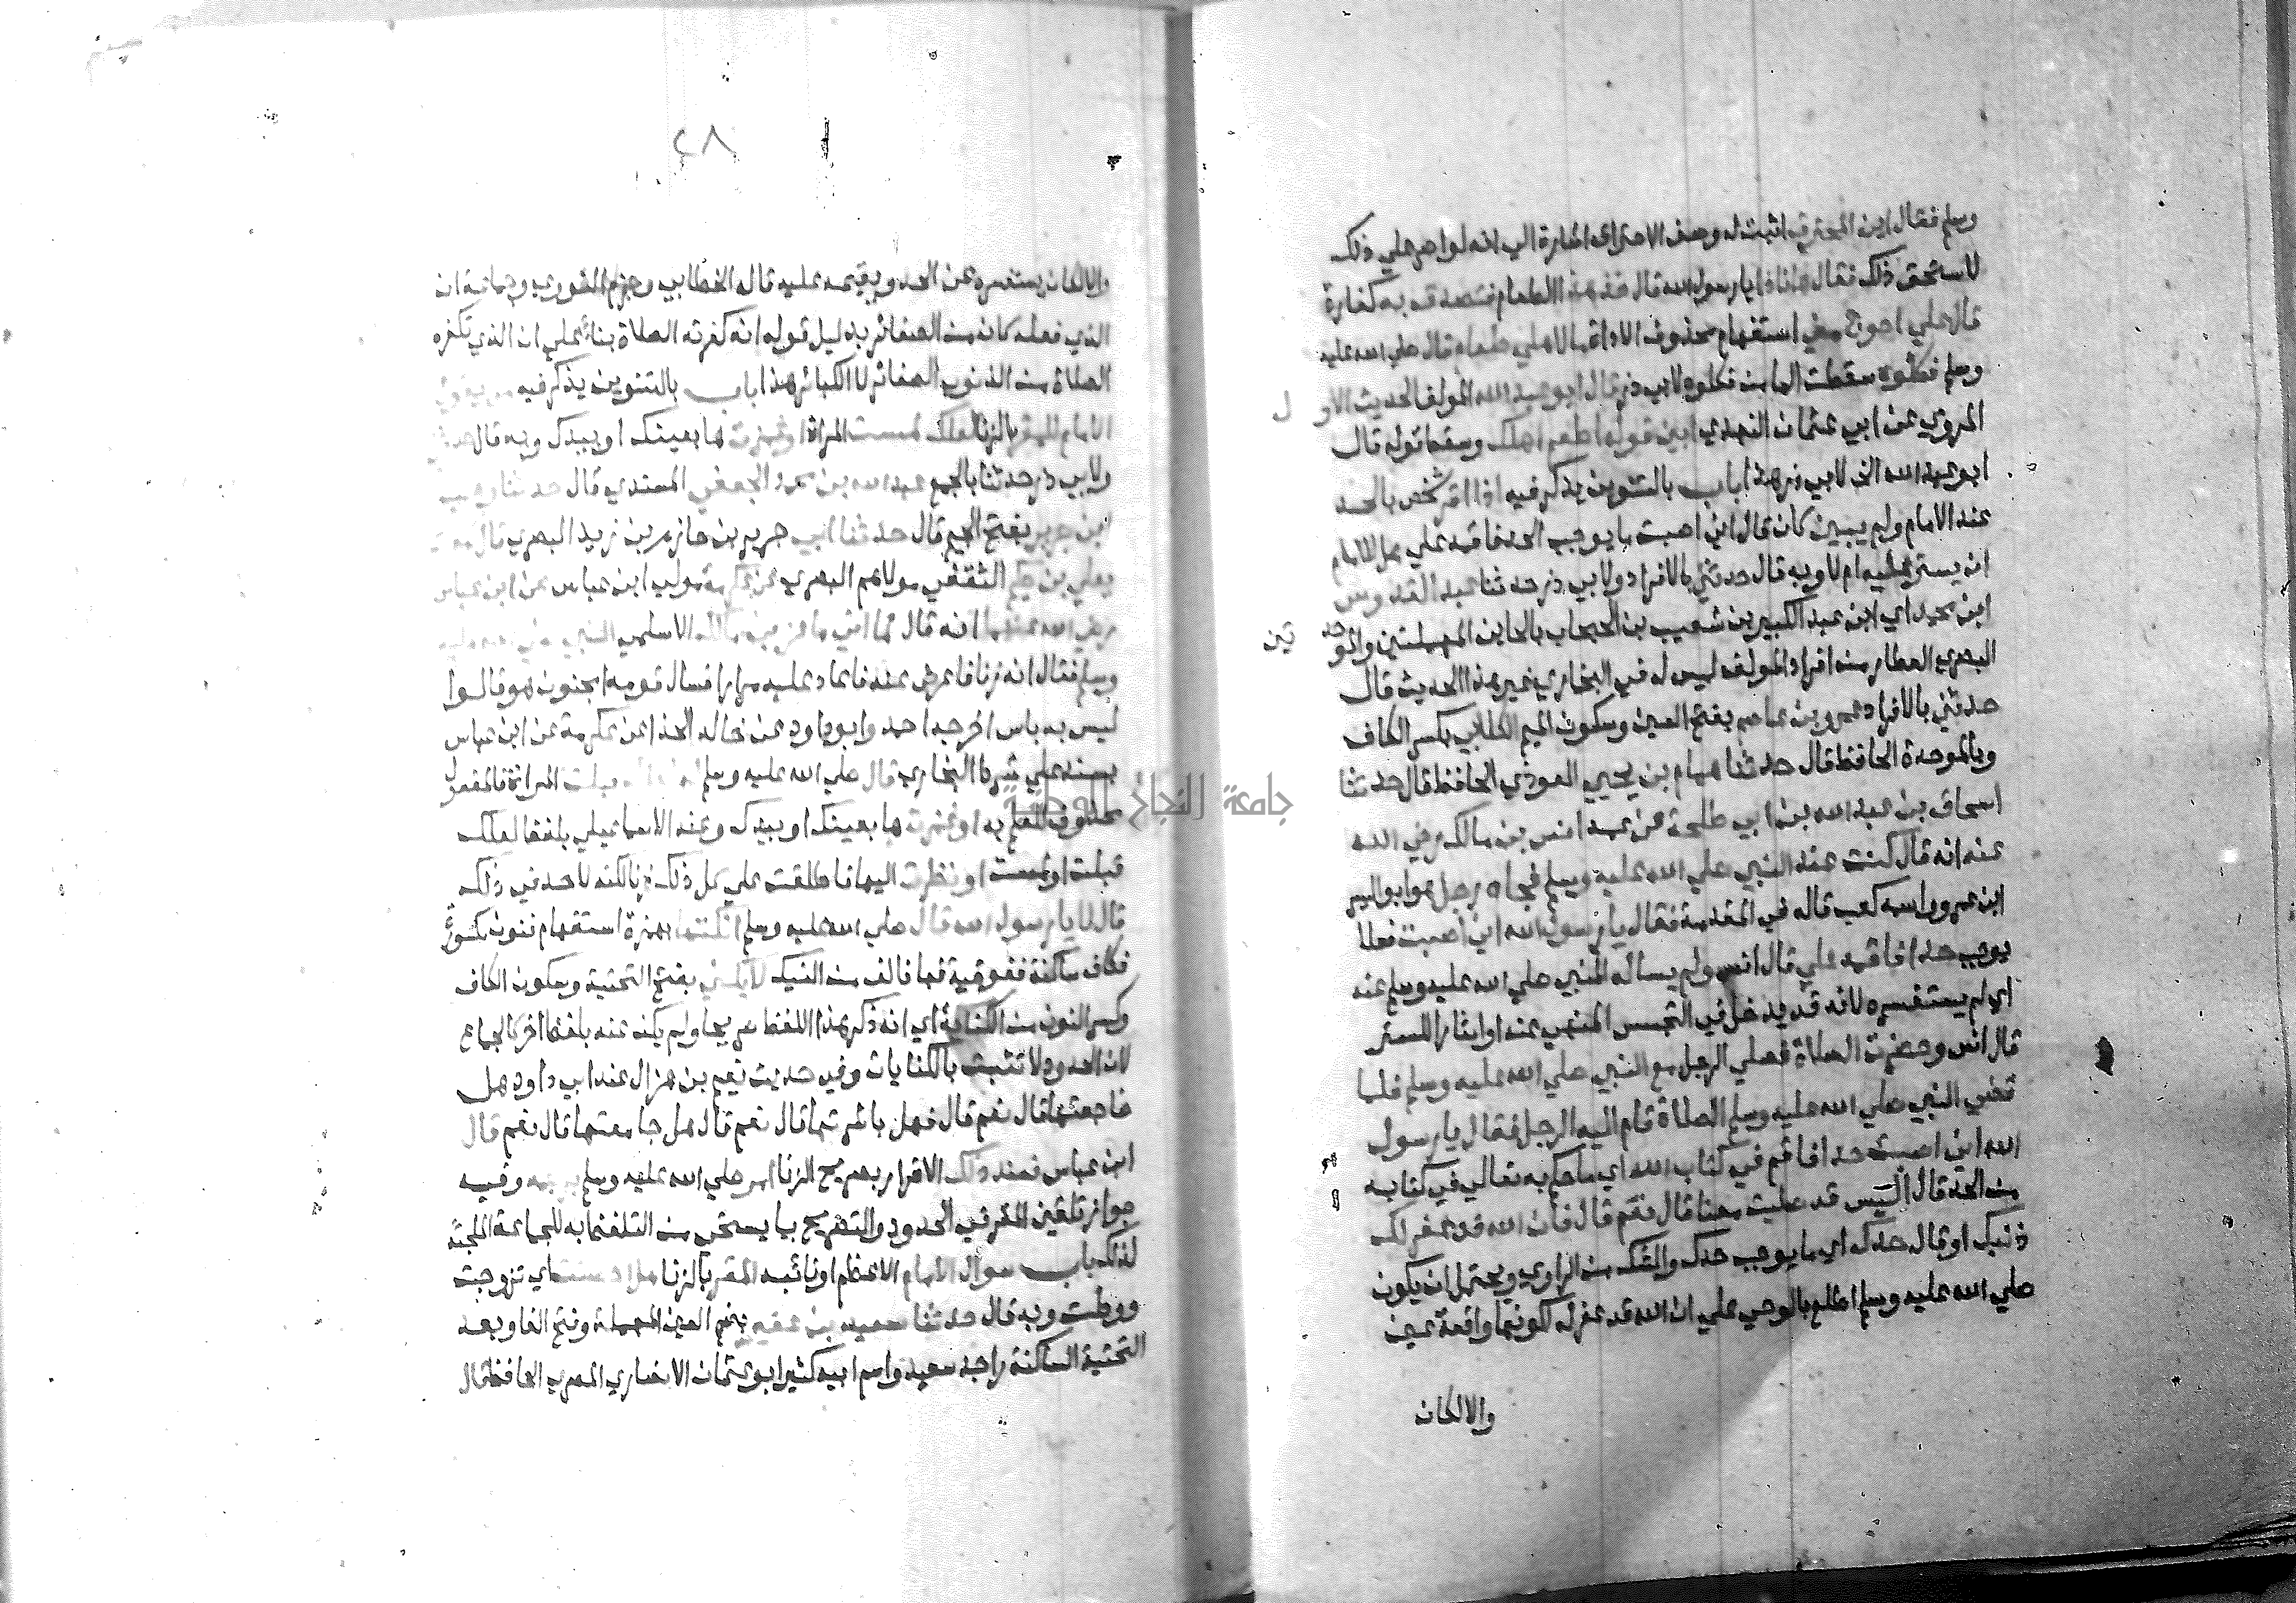 وسلم فقال اين المحترق اثبت له وصف الاحتراق اشارة الى انه لو اصر على ذلك
لاستحق ذلك فقال ها انا ذا يا رسول الله قال خذ هذا الطعام فتصدق به كفارة
قال على احوج مني استفهام محذوف الاداة ما لاهلي طعام قال صلى الله عليه
وسلم فكلوه سقطت الها من فكلوه لابي ذر قال ابو عبد الله المولف الحديث الاول
المروي عن ابي عثمان النهدي ابين قوله اطعم اهلك وسقط قوله قال
ابو عبد الله الخ لابي ذر هذا باب بالتنوين يذكر فيه اذا اقر شخص بالحد
عند الامام ولم يبين كان قال اني اصبت ما يوجب الحد فاقمه علي هل للامام
ان يستر عليه ام لا وبه قال حدثني بالافراد ولابي ذر حدثنا عبد القدوس
ابن محمد اي ابن عبد الكبير بن شعيب بن الحبحاب بالحاين المهملتين والموحدتين
البصري العطار من افراد المولف ليس له في البخاري غير هذا الحديث قال
حدثني بالافراد عمرو بن عاصم بفتح العين وسكون الميم الكلابي بكسر الكاف
وبالموحدة الحافظ قال حدثنا همام بن يحيى العوذي الحافظ قال حدثنا
اسحاق بن عبد الله بن ابي طلحة عن عمه انس بن مالك رضي الله
عنه انه قال كنت عند النبي صلى الله عليه وسلم فجاه رجل هو ابو اليسر
ابن عمرو واسمه كعب قاله في المقدمة فقال يا رسول الله اني اصبت فعلا
يوجب حدا فاقمه علي قال انس ولم يساله النبي صلى الله عليه وسلم عنه
اي لم يستفسره لانه قد يدخل في التجسس المنهي عنه او ايثارا للستر
قال انس وحضرت الصلاة فصلى الرجل مع النبي صلى الله عليه وسلم فلما
قضى النبي صلى الله عليه وسلم الصلاة قام اليه الرجل فقال يا رسول
الله اني اصبت حدا فاقم في كتاب الله اي ما حكم به تعالى في كتابه
من الحد قال اليس قد صليت معنا قال نعم قال فان الله قد غفر لك
ذنبك او قال حدك اي ما يوجب حدك والشك من الراوي ويحتمل ان يكون
صلى الله عليه وسلم اطلع بالوحي على ان الله قد غفر له لكونها واقعة عين
والا لكان
٢٨
والا لكان يستفسره عن الحد ويقيمه عليه قاله الخطابي وجزم النووي وجماعة ان
الذي فعله كان من الصغائر بدليل قوله انه كفرته الصلاة بناء على ان الذي تكفره
الصلاة من الذنوب الصغائر لا الكبائر هذا باب بالتنوين يذكر فيه هل يقول
الامام للمقر بالزنا لعلك لمست المراة او غمزتها بعينك او بيدك وبه قال حدثني
ولابي ذر حدثنا بالجمع عبد الله بن محمد الجعفي المسندي قال حدثنا وهب
ابن جرير بفتح الجيم قال حدثنا ابي جرير بن حازم بن زيد البصري قال سمعت
يعلى بن حكيم الثقفي مولاهم البصري عن عكرمة مولى ابن عباس عن ابن عباس
رضي الله عنهما انه قال لما اتى ماعز بن مالك الاسلمي النبي صلى الله عليه
وسلم فقال انه زنا فاعرض عنه فاعاد عليه مرارا فسال قومه امجنون هو قالوا
ليس به باس اخرجه احمد وابو داود عن خالد الحذا عن عكرمة عن ابن عباس
بسند على شرط البخاري قال صلى الله عليه وسلم له لعلك قبلت المراة فالمفعول
محذوف للعلم به او غمزتها بعينك او بيدك وعند الاسماعيلي بلفظ لعلك
قبلت او لمست او نظرت اليها فاطلقت على كل ذلك زنا لكنه لا حد في ذلك
قال لا يا رسول الله قال صلى الله عليه وسلم انكتها بهمزة استفهام فنون مكسورة
فكاف ساكنة ففوقية فها فالف من النيك لا يكني بفتح التحتية وسكون الكاف
وكسر النون من الكناية اي انه ذكر هذا اللفظ صريحا ولم يكن عنه بلفظ اخر كالجماع
لان الحدود لا تثبت بالكنايات وفي حديث نعيم بن هزال عند ابي داود هل
ضاجعتها قال نعم قال فهل باشرتها قال نعم قال هل جامعتها قال نعم قال
ابن عباس فعند ذلك الاقرار بصريح الزنا امر صلى الله عليه وسلم برجمه وفيه
جواز تلقين المقر في الحدود والتصريح بما يستحى من التلفظ به للحاجة الملجئة
لذلك باب سوال الامام الاعظم او نائبه المقر بالزنا هل احصنت اي تزوجت
ووطئت وبه قال حدثنا سعيد بن عفير بضم العين المهملة وفتح الفا وبعد
التحتية الساكنة را جد سعيد واسم ابيه كثير ابو عثمان الانصاري المصري الحافظ قال
جامعة النجاح الوطنية